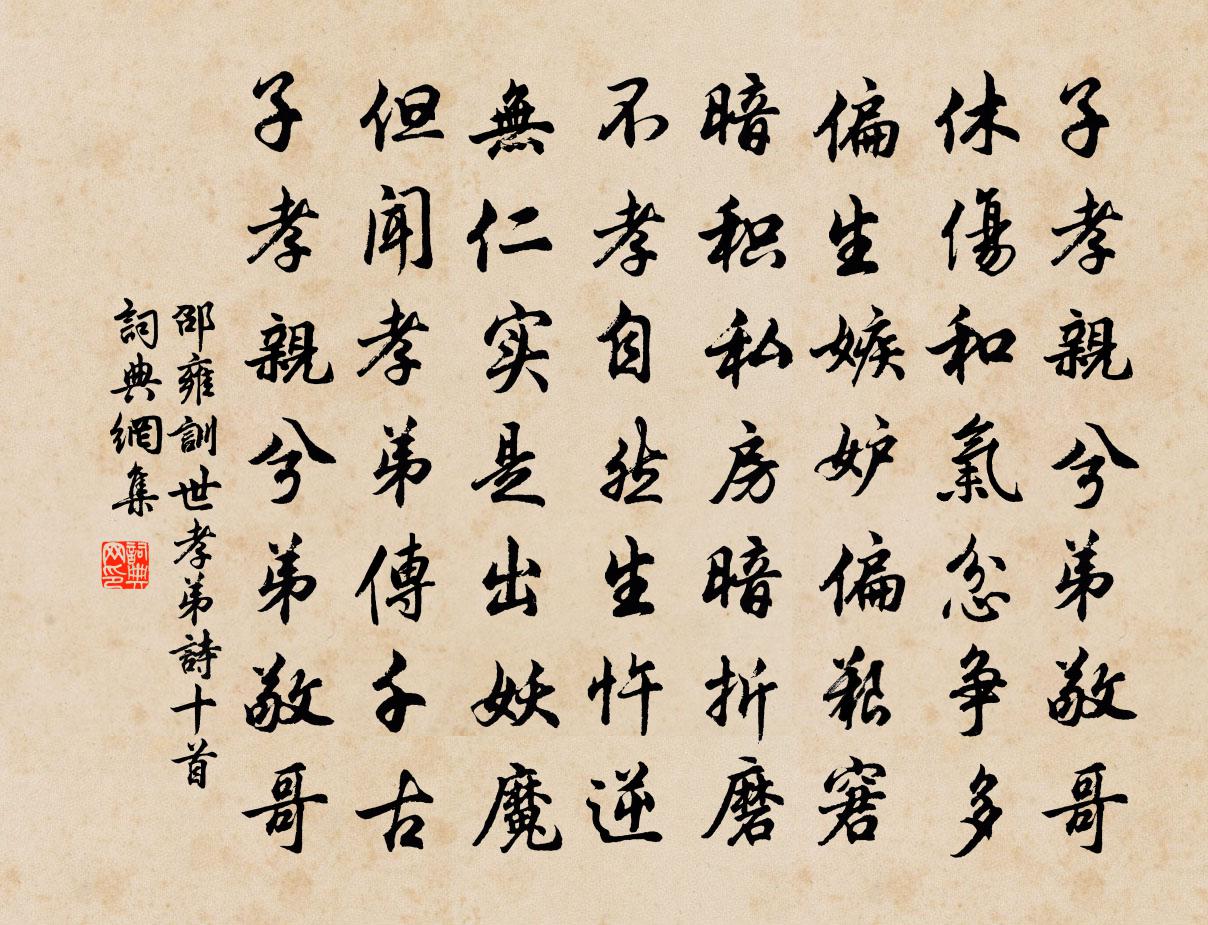 子孝親兮弟敬哥
休傷和氣忿爭多
偏生嫉妒偏艱窘
暗积私房暗折磨
不孝自然生忤逆
無仁实是出妖魔
但聞孝弟傳千古
子孝親兮弟敬哥
邵雍訓世孝弟詩十首
詞典網集
詞典
网印